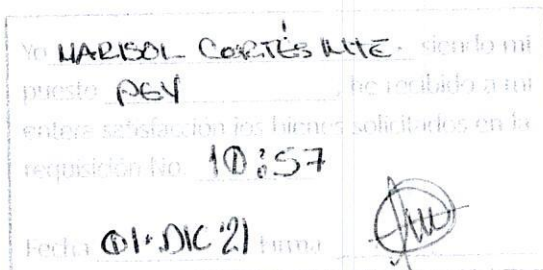 Yo MARISOL CORTÉS siendo mi
puesto PGY he recibido a mi
entera satisfacción los bienes solicitados en la
requisición No. 10:57
Fecha 01·DIC '21 Firma